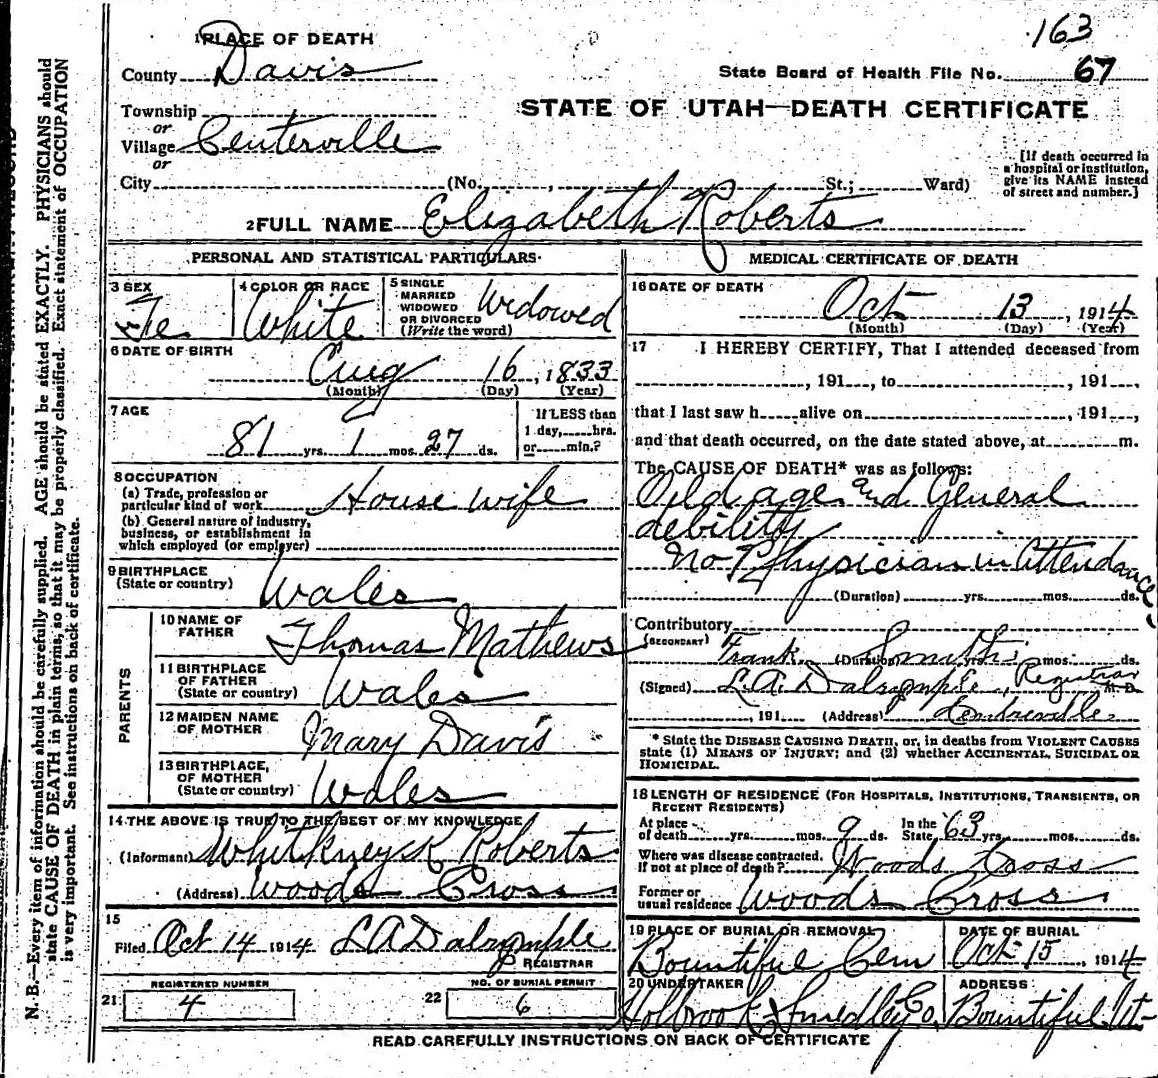 163
1 PLACE OF DEATH
County Davis
State Board of Health File No. 67
STATE OF UTAH—DEATH CERTIFICATE
Township
or
Village Centerville
or
City (No. , St.; Ward)
[If death occurred in
a hospital or institution,
give its NAME instead
of street and number.]
2 FULL NAME Elizabeth Roberts
PERSONAL AND STATISTICAL PARTICULARS
3 SEX
Fe
4 COLOR OR RACE
White
5 SINGLE
MARRIED
WIDOWED
OR DIVORCED
(Write the word)
Widowed
6 DATE OF BIRTH
Aug 16, 1833
(Month) (Day) (Year)
7 AGE
81 yrs. 1 mos. 27 ds.
If LESS than
1 day, hrs.
or min.?
8 OCCUPATION
(a) Trade, profession or
particular kind of work House wife
(b) General nature of industry,
business, or establishment in
which employed (or employer)
9 BIRTHPLACE
(State or country) Wales
PARENTS
10 NAME OF
FATHER Thomas Mathews
11 BIRTHPLACE
OF FATHER
(State or country) Wales
12 MAIDEN NAME
OF MOTHER Mary Davis
13 BIRTHPLACE,
OF MOTHER
(State or country) Wales
14 THE ABOVE IS TRUE TO THE BEST OF MY KNOWLEDGE
(Informant) Whitkney K Roberts
(Address) Woods Cross
15
Filed Oct 14 1914 L A Dalrymple
REGISTRAR
21 REGISTERED NUMBER
4
22 NO. OF BURIAL PERMIT
6
MEDICAL CERTIFICATE OF DEATH
16 DATE OF DEATH
Oct 13, 1914
(Month) (Day) (Year)
17 I HEREBY CERTIFY, That I attended deceased from
, 191 , to , 191 ,
that I last saw h alive on , 191 ,
and that death occurred, on the date stated above, at m.
The CAUSE OF DEATH* was as follows:
Oild age and General
debility
No Physician in Attendance
(Duration) yrs. mos. ds.
Contributory
(SECONDARY) Frank Smith
(Duration) yrs. mos. ds.
(Signed) L.A. Dalrymple, Registrar M. D.
, 191 (Address) Centreville
* State the DISEASE CAUSING DEATH, or, in deaths from VIOLENT CAUSES
state (1) MEANS OF INJURY; and (2) whether ACCIDENTAL, SUICIDAL OR
HOMICIDAL.
18 LENGTH OF RESIDENCE (FOR HOSPITALS, INSTITUTIONS, TRANSIENTS, OR
RECENT RESIDENTS)
At place
of death yrs. mos. 9 ds. In the
State 63 yrs. mos. ds.
Where was disease contracted,
If not at place of death? Woods Cross
Former or
usual residence Woods Cross
19 PLACE OF BURIAL OR REMOVAL
Bountiful Cem
DATE OF BURIAL
Oct 15, 1914
20 UNDERTAKER
Holbrook & Smedley Co.
ADDRESS
Bountiful Ut
READ CAREFULLY INSTRUCTIONS ON BACK OF CERTIFICATE
N. B.—Every item of information should be carefully supplied. AGE should be stated EXACTLY. PHYSICIANS should
state CAUSE OF DEATH in plain terms, so that it may be properly classified. Exact statement of OCCUPATION
is very important. See instructions on back of certificate.